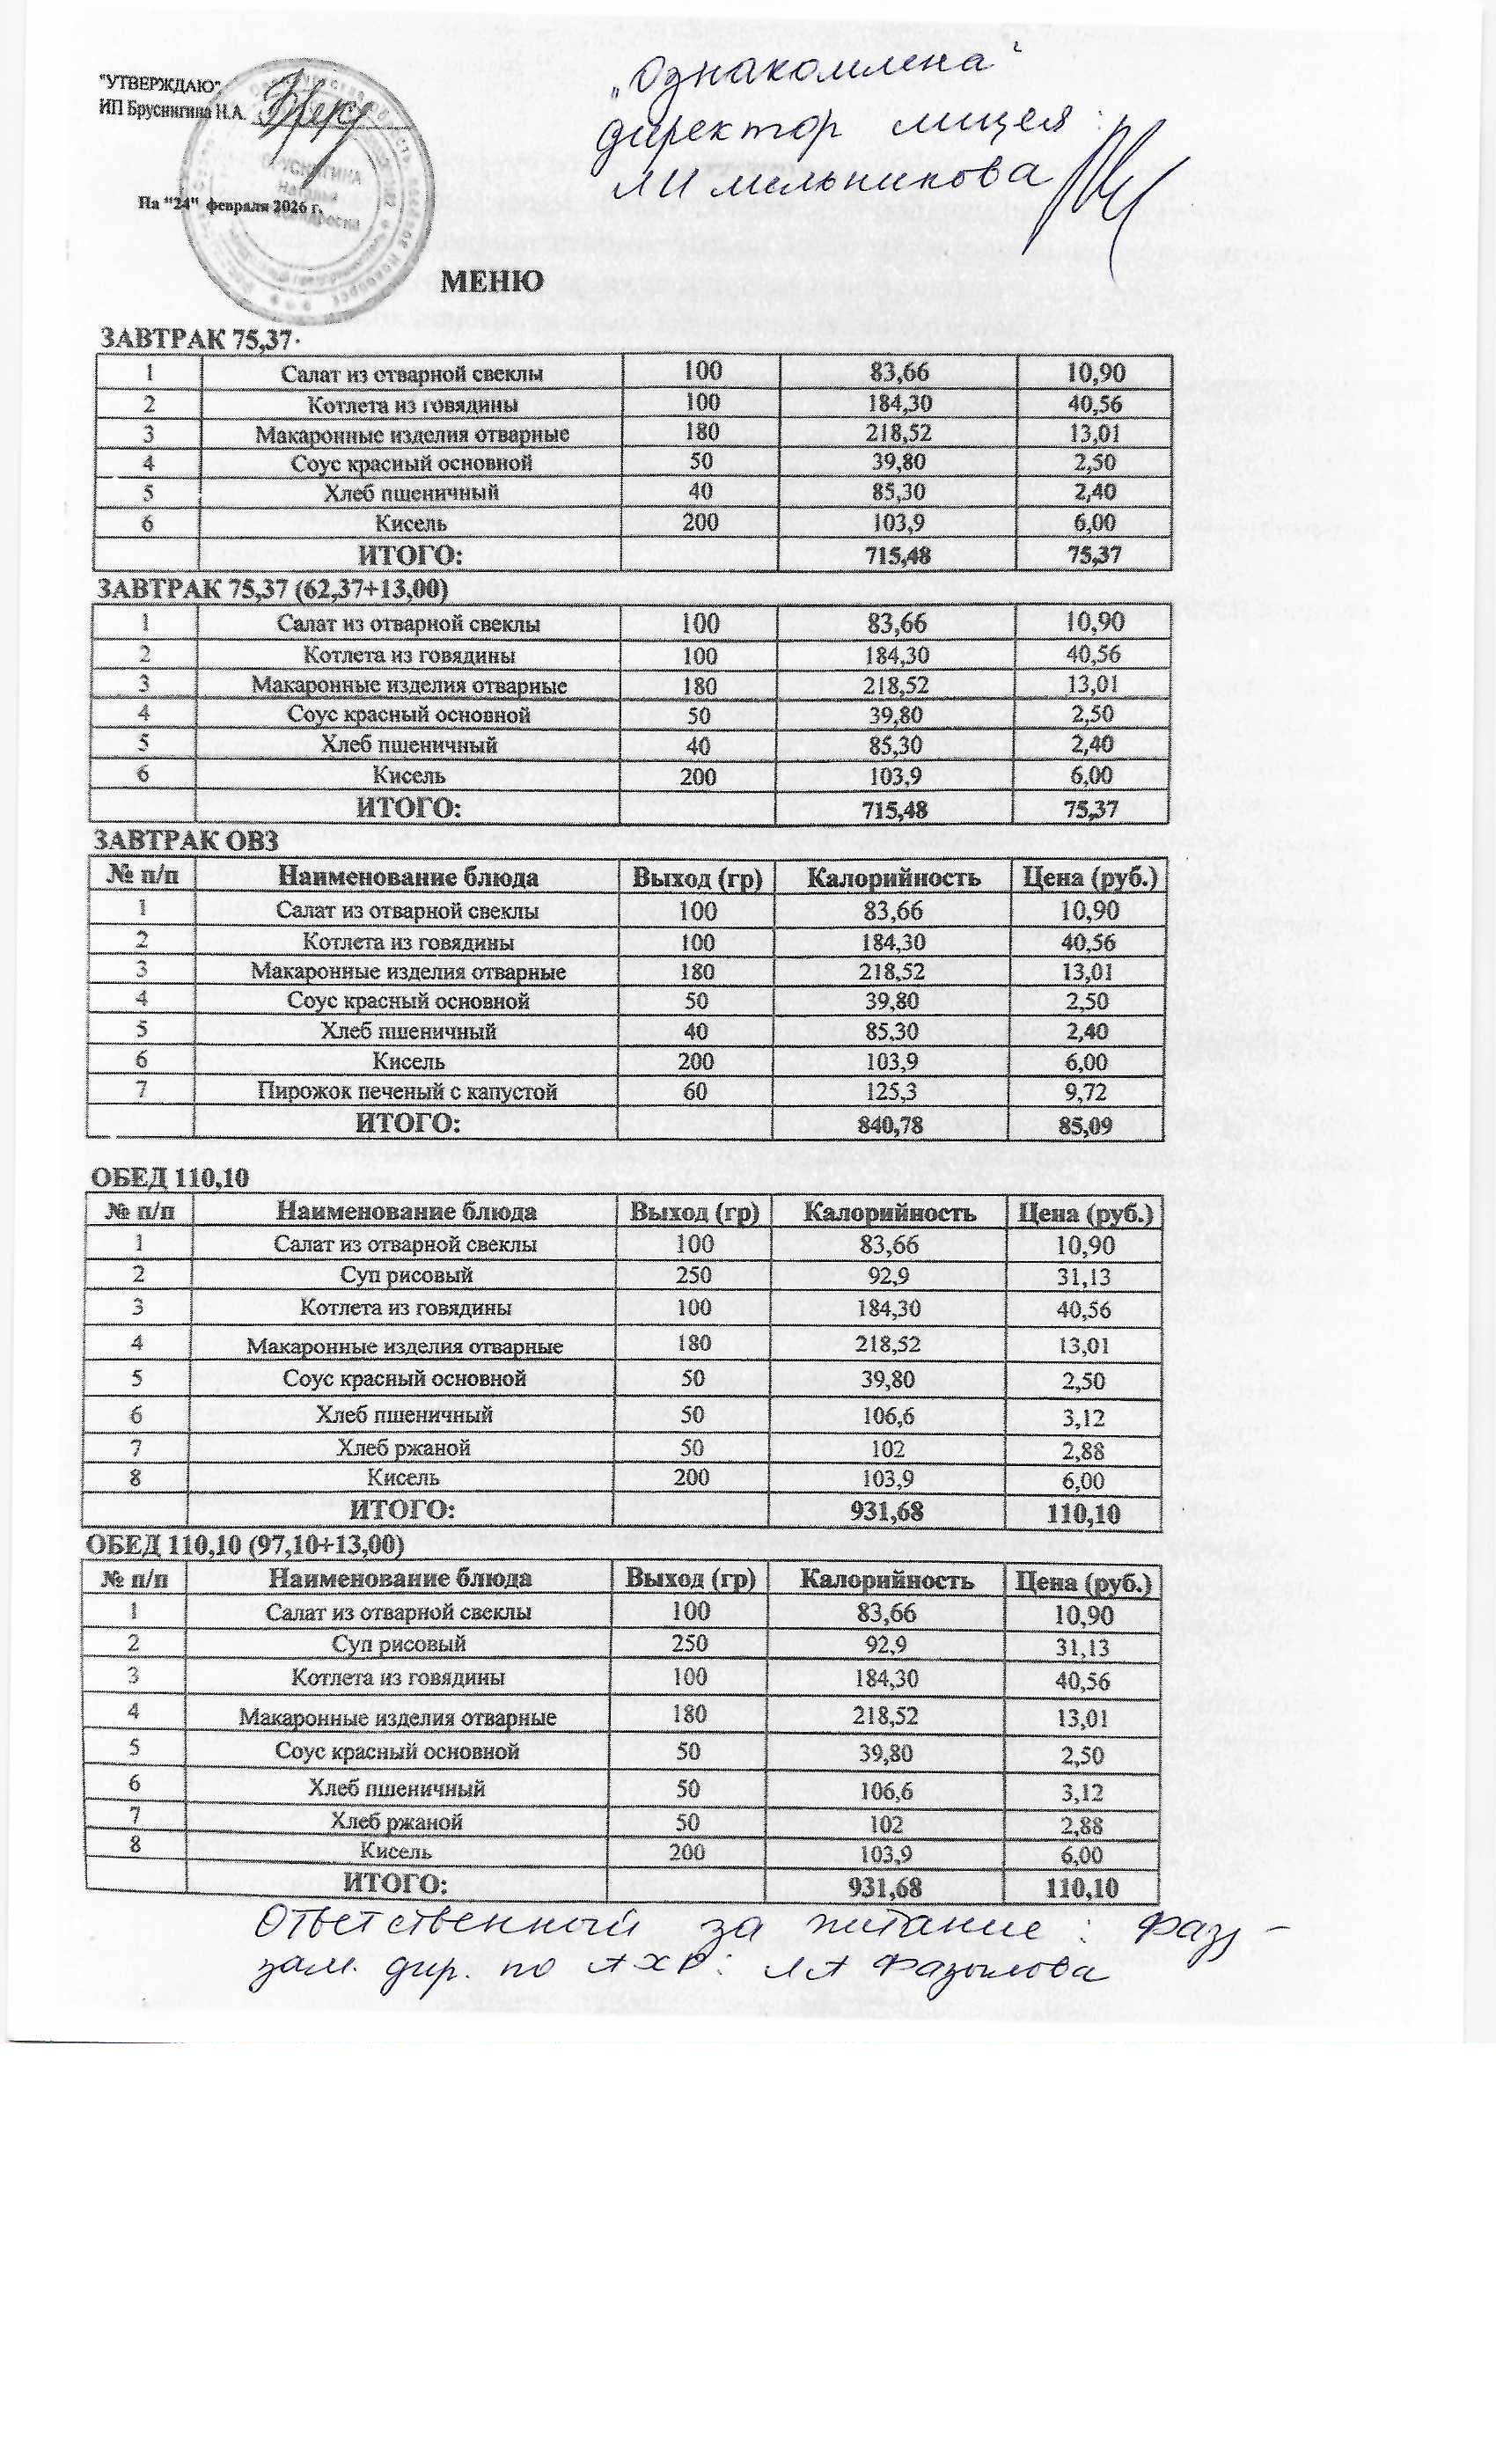 "УТВЕРЖДАЮ"
ИП Бруснигина Н.А.
На "24" февраля 2026 г.
„Ознакомлена"
директор лицея:
ЛИ Мельникова
МЕНЮ
ЗАВТРАК 75,37
1 Салат из отварной свеклы 100 83,66 10,90
2 Котлета из говядины 100 184,30 40,56
3 Макаронные изделия отварные 180 218,52 13,01
4 Соус красный основной 50 39,80 2,50
5 Хлеб пшеничный 40 85,30 2,40
6 Кисель 200 103,9 6,00
ИТОГО: 715,48 75,37
ЗАВТРАК 75,37 (62,37+13,00)
1 Салат из отварной свеклы 100 83,66 10,90
2 Котлета из говядины 100 184,30 40,56
3 Макаронные изделия отварные 180 218,52 13,01
4 Соус красный основной 50 39,80 2,50
5 Хлеб пшеничный 40 85,30 2,40
6 Кисель 200 103,9 6,00
ИТОГО: 715,48 75,37
ЗАВТРАК ОВЗ
№ п/п Наименование блюда Выход (гр) Калорийность Цена (руб.)
1 Салат из отварной свеклы 100 83,66 10,90
2 Котлета из говядины 100 184,30 40,56
3 Макаронные изделия отварные 180 218,52 13,01
4 Соус красный основной 50 39,80 2,50
5 Хлеб пшеничный 40 85,30 2,40
6 Кисель 200 103,9 6,00
7 Пирожок печеный с капустой 60 125,3 9,72
ИТОГО: 840,78 85,09
ОБЕД 110,10
№ п/п Наименование блюда Выход (гр) Калорийность Цена (руб.)
1 Салат из отварной свеклы 100 83,66 10,90
2 Суп рисовый 250 92,9 31,13
3 Котлета из говядины 100 184,30 40,56
4 Макаронные изделия отварные 180 218,52 13,01
5 Соус красный основной 50 39,80 2,50
6 Хлеб пшеничный 50 106,6 3,12
7 Хлеб ржаной 50 102 2,88
8 Кисель 200 103,9 6,00
ИТОГО: 931,68 110,10
ОБЕД 110,10 (97,10+13,00)
№ п/п Наименование блюда Выход (гр) Калорийность Цена (руб.)
1 Салат из отварной свеклы 100 83,66 10,90
2 Суп рисовый 250 92,9 31,13
3 Котлета из говядины 100 184,30 40,56
4 Макаронные изделия отварные 180 218,52 13,01
5 Соус красный основной 50 39,80 2,50
6 Хлеб пшеничный 50 106,6 3,12
7 Хлеб ржаной 50 102 2,88
8 Кисель 200 103,9 6,00
ИТОГО: 931,68 110,10
Ответственный за питание:
зам. дир. по АХР: ЛА Фазылова